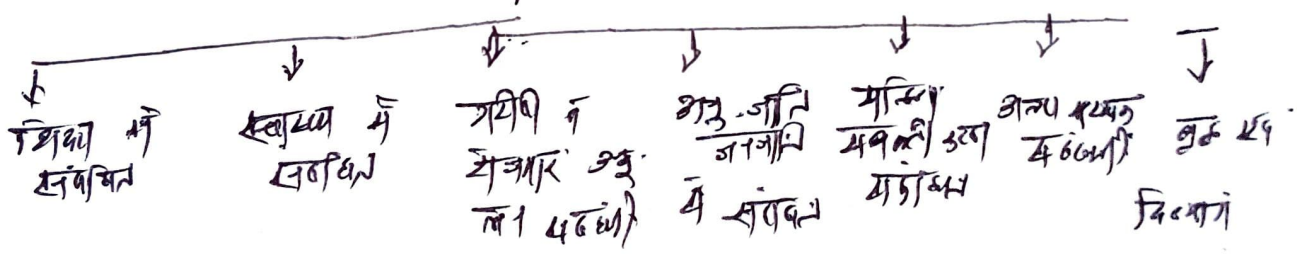 शिक्षा से
संबंधित
स्वास्थ्य से
संबंधित
गरीबी व
रोजगार
संबंधी
अनु.जाति
जनजाति
से संबंधित
महिला
सशक्ती करण
संबंधित
अल्प संख्यक
संबंधी
वृद्ध एवं
दिव्यांग